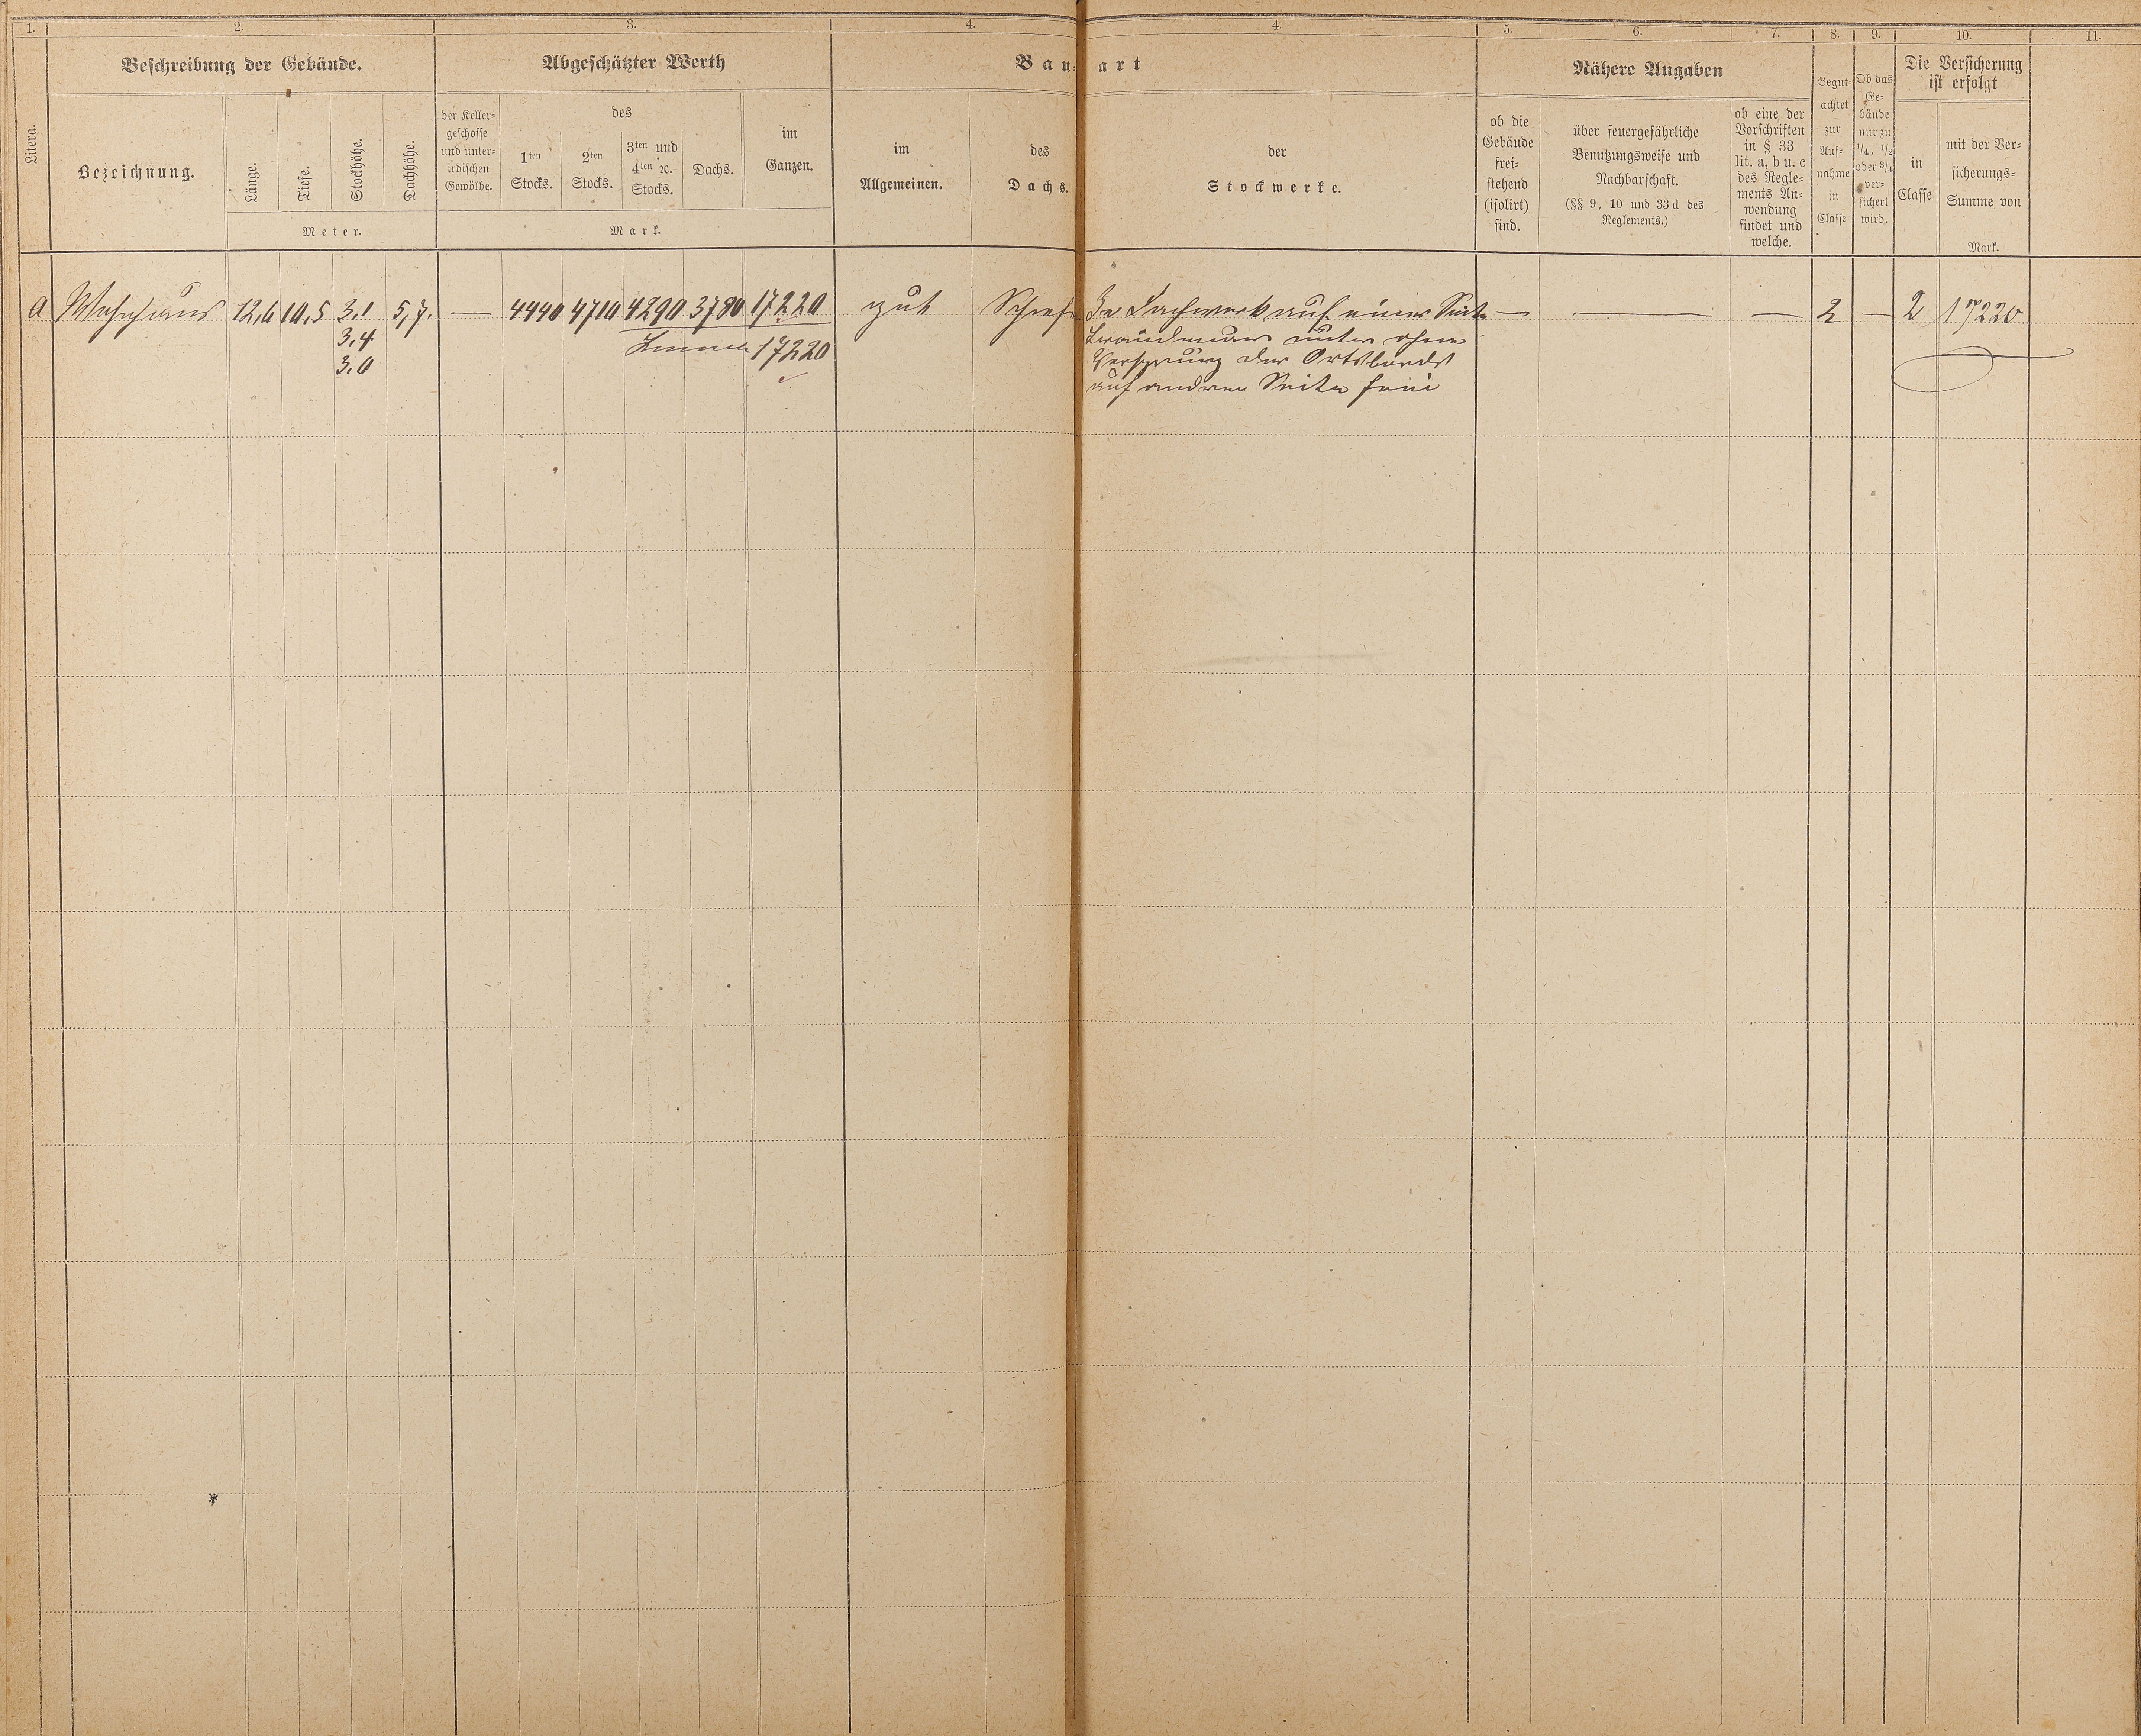 1. 2. 3. 4. 4. 5. 6. 7. 8. 9. 10. 11.
Beschreibung der Gebäude. Abgeschätzter Werth Bau- art Nähere Angaben Die Versicherung
ist erfolgt
Litera.
Bezeichnung.
Länge.
Tiefe.
Stockhöhe.
Dachhöhe.
Meter.
der Keller-
geschosse
und unter-
irdischen
Gewölbe.
des
1ten
Stocks.
2ten
Stocks.
3ten und
4ten ꝛc.
Stocks.
Dachs.
im
Ganzen.
Mark.
im
Allgemeinen.
des
Dachs.
der
Stockwerke.
ob die
Gebäude
frei-
stehend
(isolirt)
sind.
über feuergefährliche
Benutzungsweise und
Nachbarschaft.
(§§ 9, 10 und 33 d des
Reglements.)
ob eine der
Vorschriften
in § 33
lit. a, b u. c
des Regle-
ments An-
wendung
findet und
welche.
Begut-
achtet
zur
Auf-
nahme
in
Classe
Ob das
Ge-
bäude
nur zu
1/4, 1/2
oder 3/4
ver-
sichert
wird.
in
Classe
mit der Ver-
sicherungs-
Summe von
Mark.
a Wohnhaus 12,6 10,5 3,1 5,7. — 4440 4710 4290 3780 17220 gut Schief In Fachwerk auf einer Seite — — — 2 — 2 17220
3,4 Summe 17220 Brandmauer unter ohne
3,0 Vorsprung der Ortsbords
auf andrer Seite frei